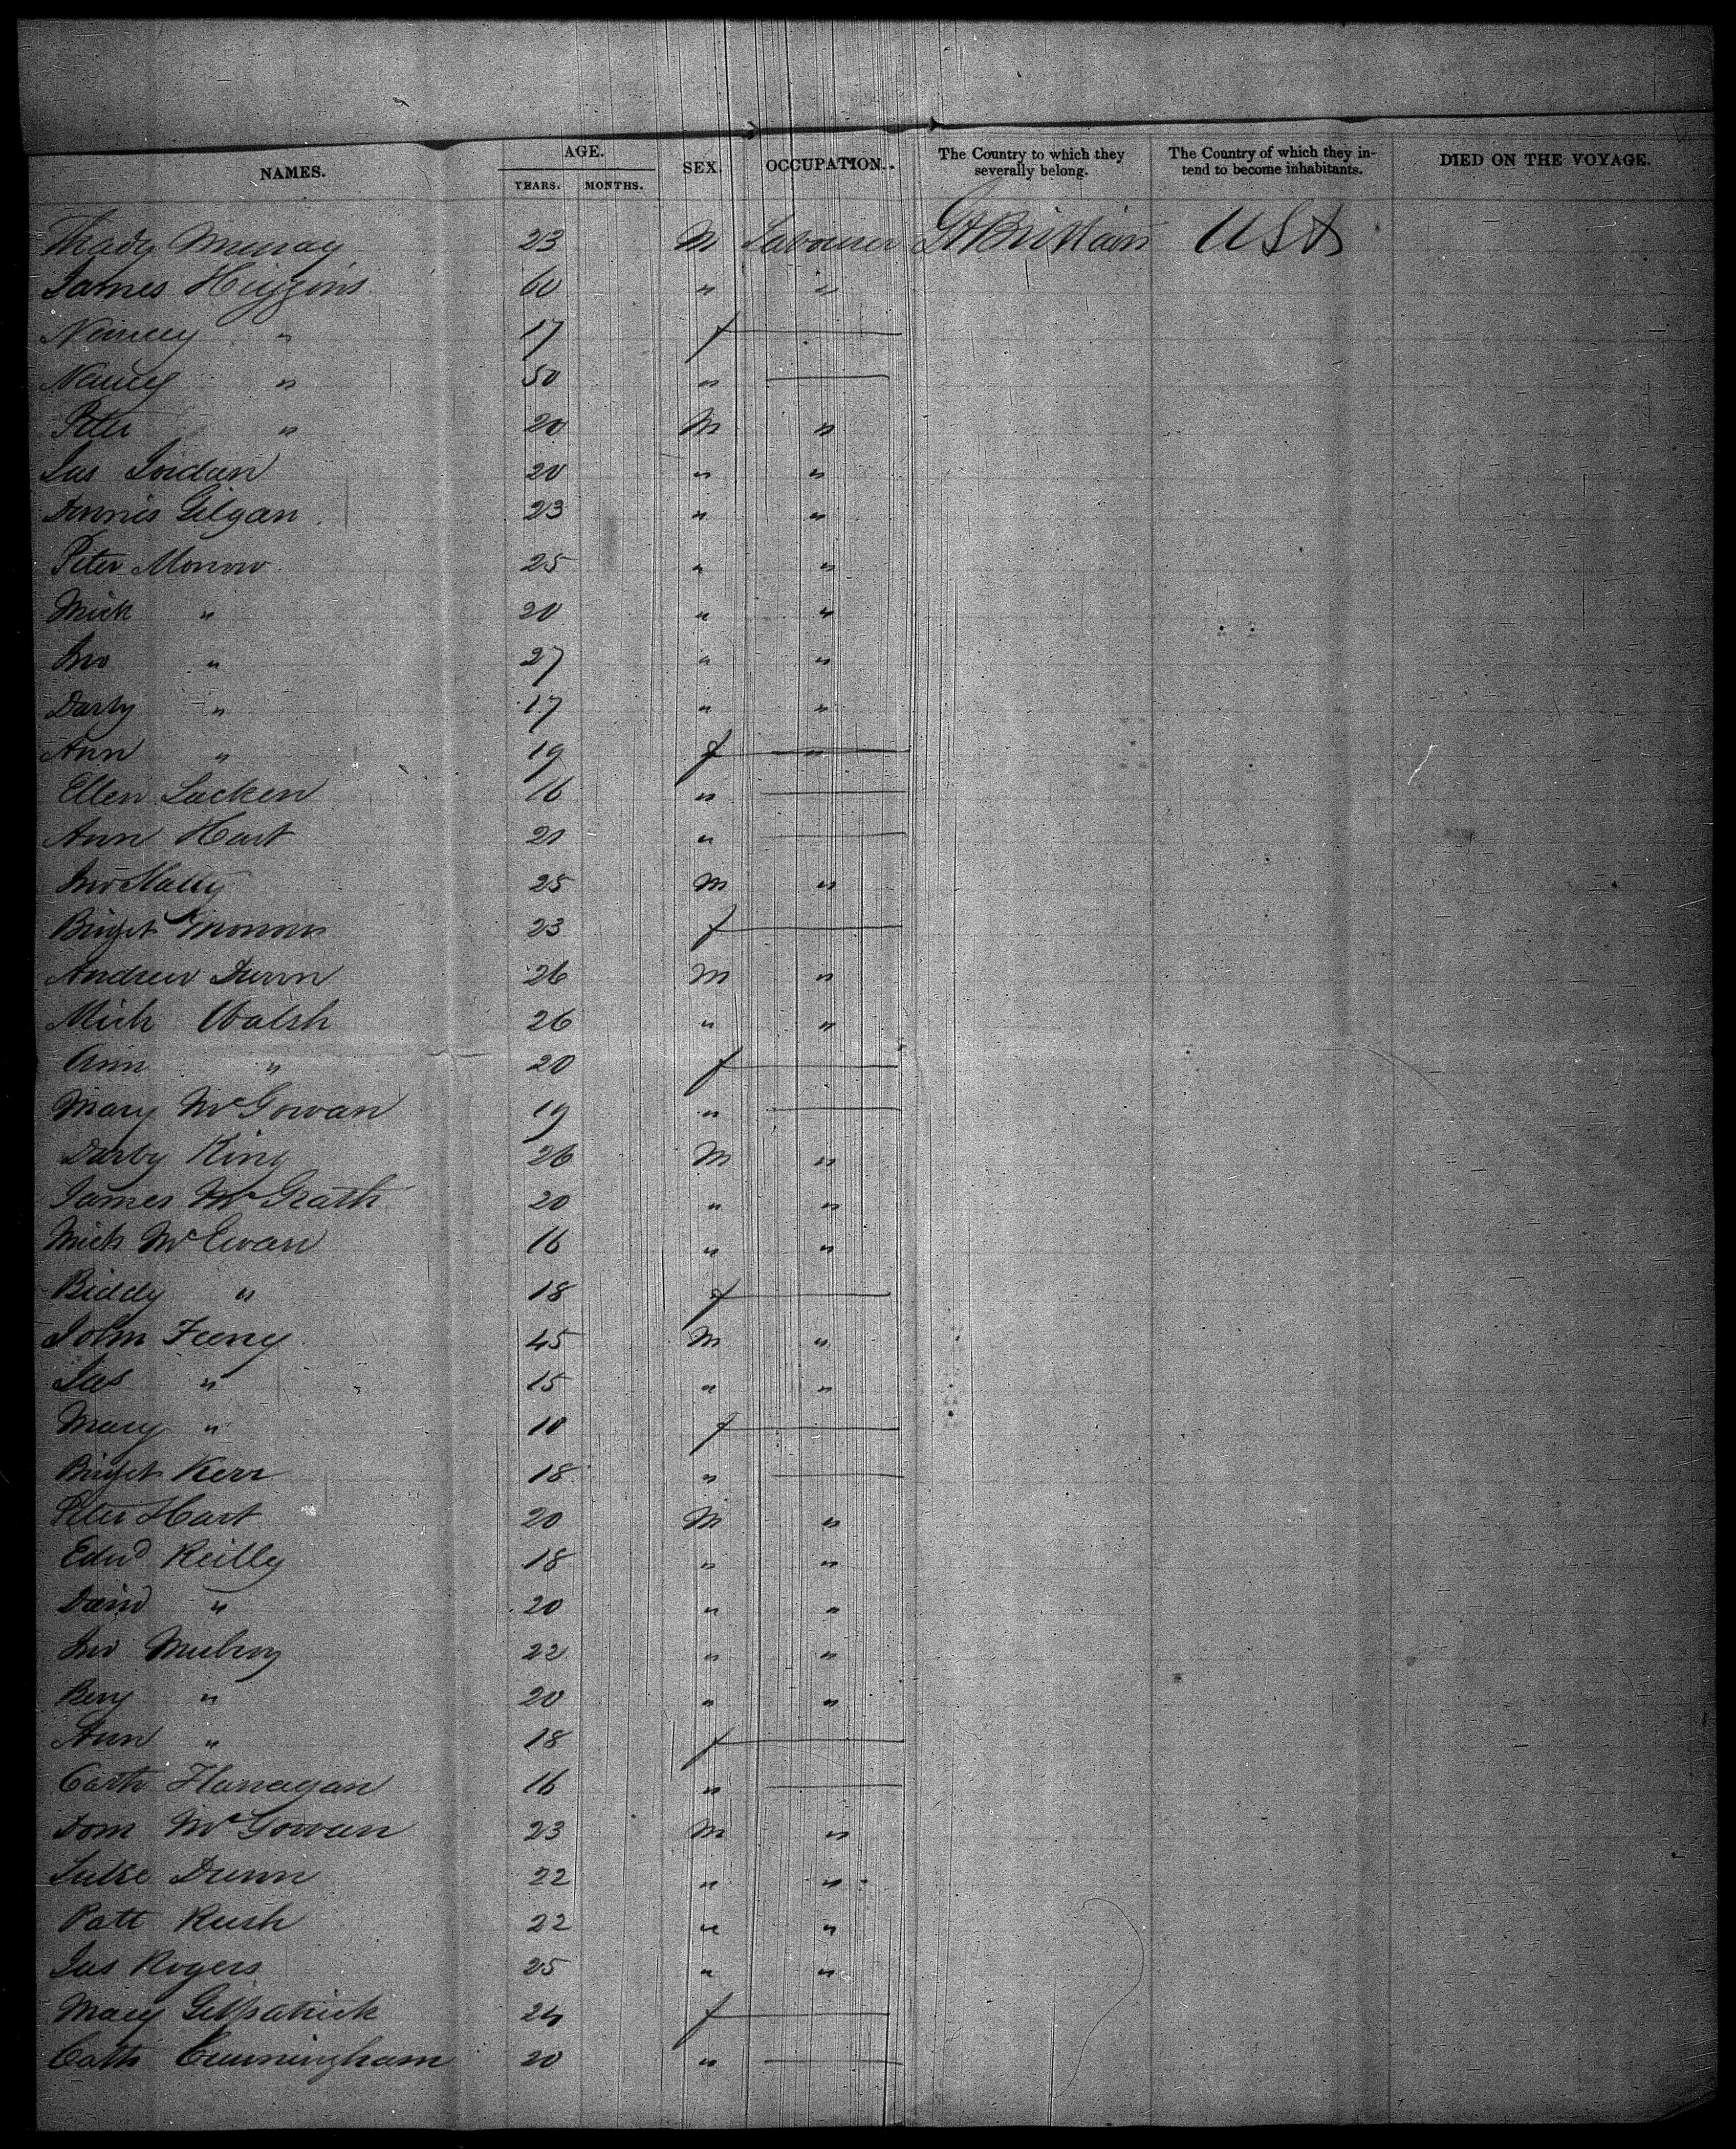 NAMES. AGE. SEX. OCCUPATION. The Country to which they severally belong. The Country of which they intend to become inhabitants. DIED ON THE VOYAGE.
YEARS. MONTHS.
Thady Murray 23 M Labourer Gt Brittain USA
James Higgins 60 " "
Nancy " 17 f
Nancy " 50 "
Peter " 20 M "
Jas Jordan 20 " "
Dennis Gilgan 23 " "
Peter Morrow 25 " "
Mick " 20 " "
Jno " 27 " "
Darby " 17 " "
Ann " 19 f "
Ellen Lacken 16 "
Ann Hart 21 "
Jno 25 M "
Bridget Morrow 23 f
Andrew Dunn 26 M "
Mich Walsh 26 " "
Ann " 20 f
Mary McGowan 19 "
Darby King 26 M "
James McGrath 20 " "
Mich McEwan 16 " "
Biddy " 18 f
John Feeny 45 M "
Jas " 15 " "
Mary " 10 f
Bridget Kerr 18 "
Peter Hart 20 M "
Edwd Reilly 18 " "
David " 20 " "
Jno 22 " "
" 20 " "
Ann " 18 f
Cath Flanagan 16 "
Dom McGowan 23 M "
Luke Dunn 22 " "
Patt Rush 22 " "
Jas Rogers 25 " "
Mary Gilpatrick 24 f
Cath Cunningham 20 "